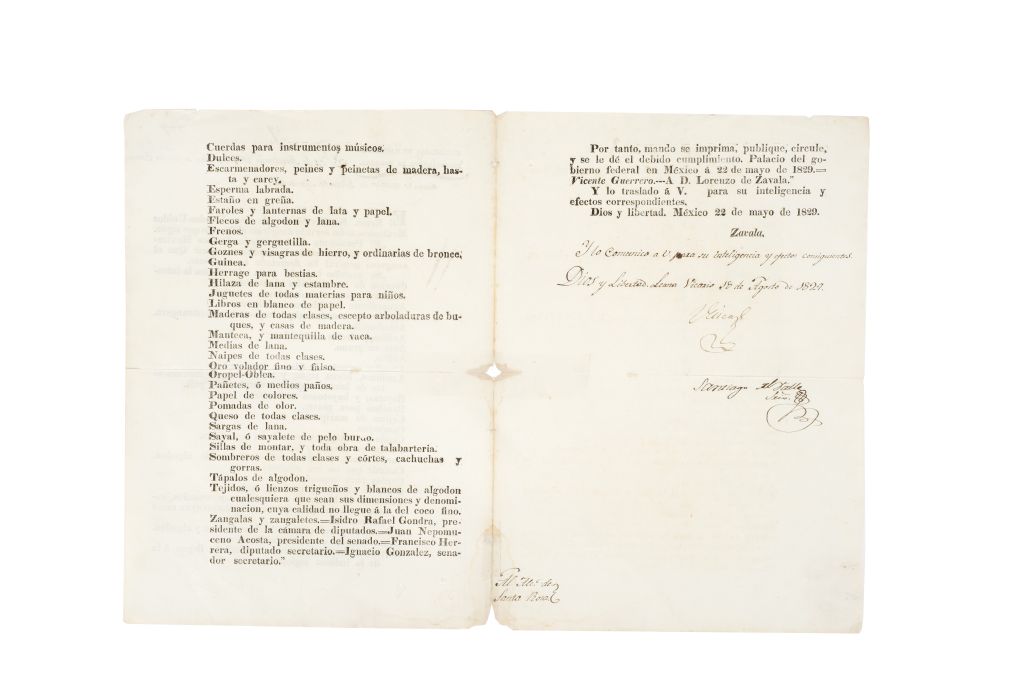 Cuerdas para instrumentos músicos.
Dulces.
Escarmenadores, peines y peinetas de madera, has-
ta y carey.
Esperma labrada.
Estaño en greña.
Faroles y lanternas de lata y papel.
Flecos de algodon y lana.
Frenos.
Gerga y gerguetilla.
Goznes y visagras de hierro, y ordinarias de bronce.
Guinea.
Herrage para bestias.
Hilaza de lana y estambre.
Juguetes de todas materias para niños.
Libros en blanco de papel.
Maderas de todas clases, escepto arboladuras de bu-
ques, y casas de madera.
Manteca, y mantequilla de vaca.
Medias de lana.
Naipes de todas clases.
Oro volador fino y falso.
Oropel-Oblea.
Pañetes, ó medios paños.
Papel de colores.
Pomadas de olor.
Queso de todas clases.
Sargas de lana.
Sayal, ó sayalete de pelo burdo.
Sillas de montar, y toda obra de talabartería.
Sombreros de todas clases y córtes, cachuchas y
gorras.
Tápalos de algodon.
Tejidos, ó lienzos trigueños y blancos de algodon
cualesquiera que sean sus dimensiones y denomi-
nacion, cuya calidad no llegue á la del coco fino.
Zangalas y zangaletes.=Isidro Rafael Gondra, pre-
sidente de la cámara de diputados.=Juan Nepomu-
ceno Acosta, presidente del senado.=Francisco Her-
rera, diputado secretario.=Ignacio Gonzalez, sena-
dor secretario."
Por tanto, mando se imprima, publique, circule,
y se le dé el debido cumplimiento. Palacio del go-
bierno federal en México á 22 de mayo de 1829.=
Vicente Guerrero.--A D. Lorenzo de Zavala."
Y lo traslado á V. para su inteligencia y
efectos correspondientes.
Dios y libertad. México 22 de mayo de 1829.
Zavala.
Y lo Comunico a V. para su inteligencia y efectos consiguientes.
Dios y Libertad. Leona Vicario 18 de Agosto de 1829.
Santiago del Valle
Srio.
Al Ale. de
Santa Rosa